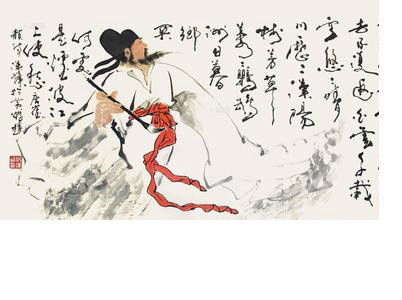 去不復返白雲千載
空悠悠晴
川歷歷漢陽
樹芳草萋
萋鸚鵡
洲日暮
鄉
關
何處
是煙波江
上使愁唐崔
顥詩